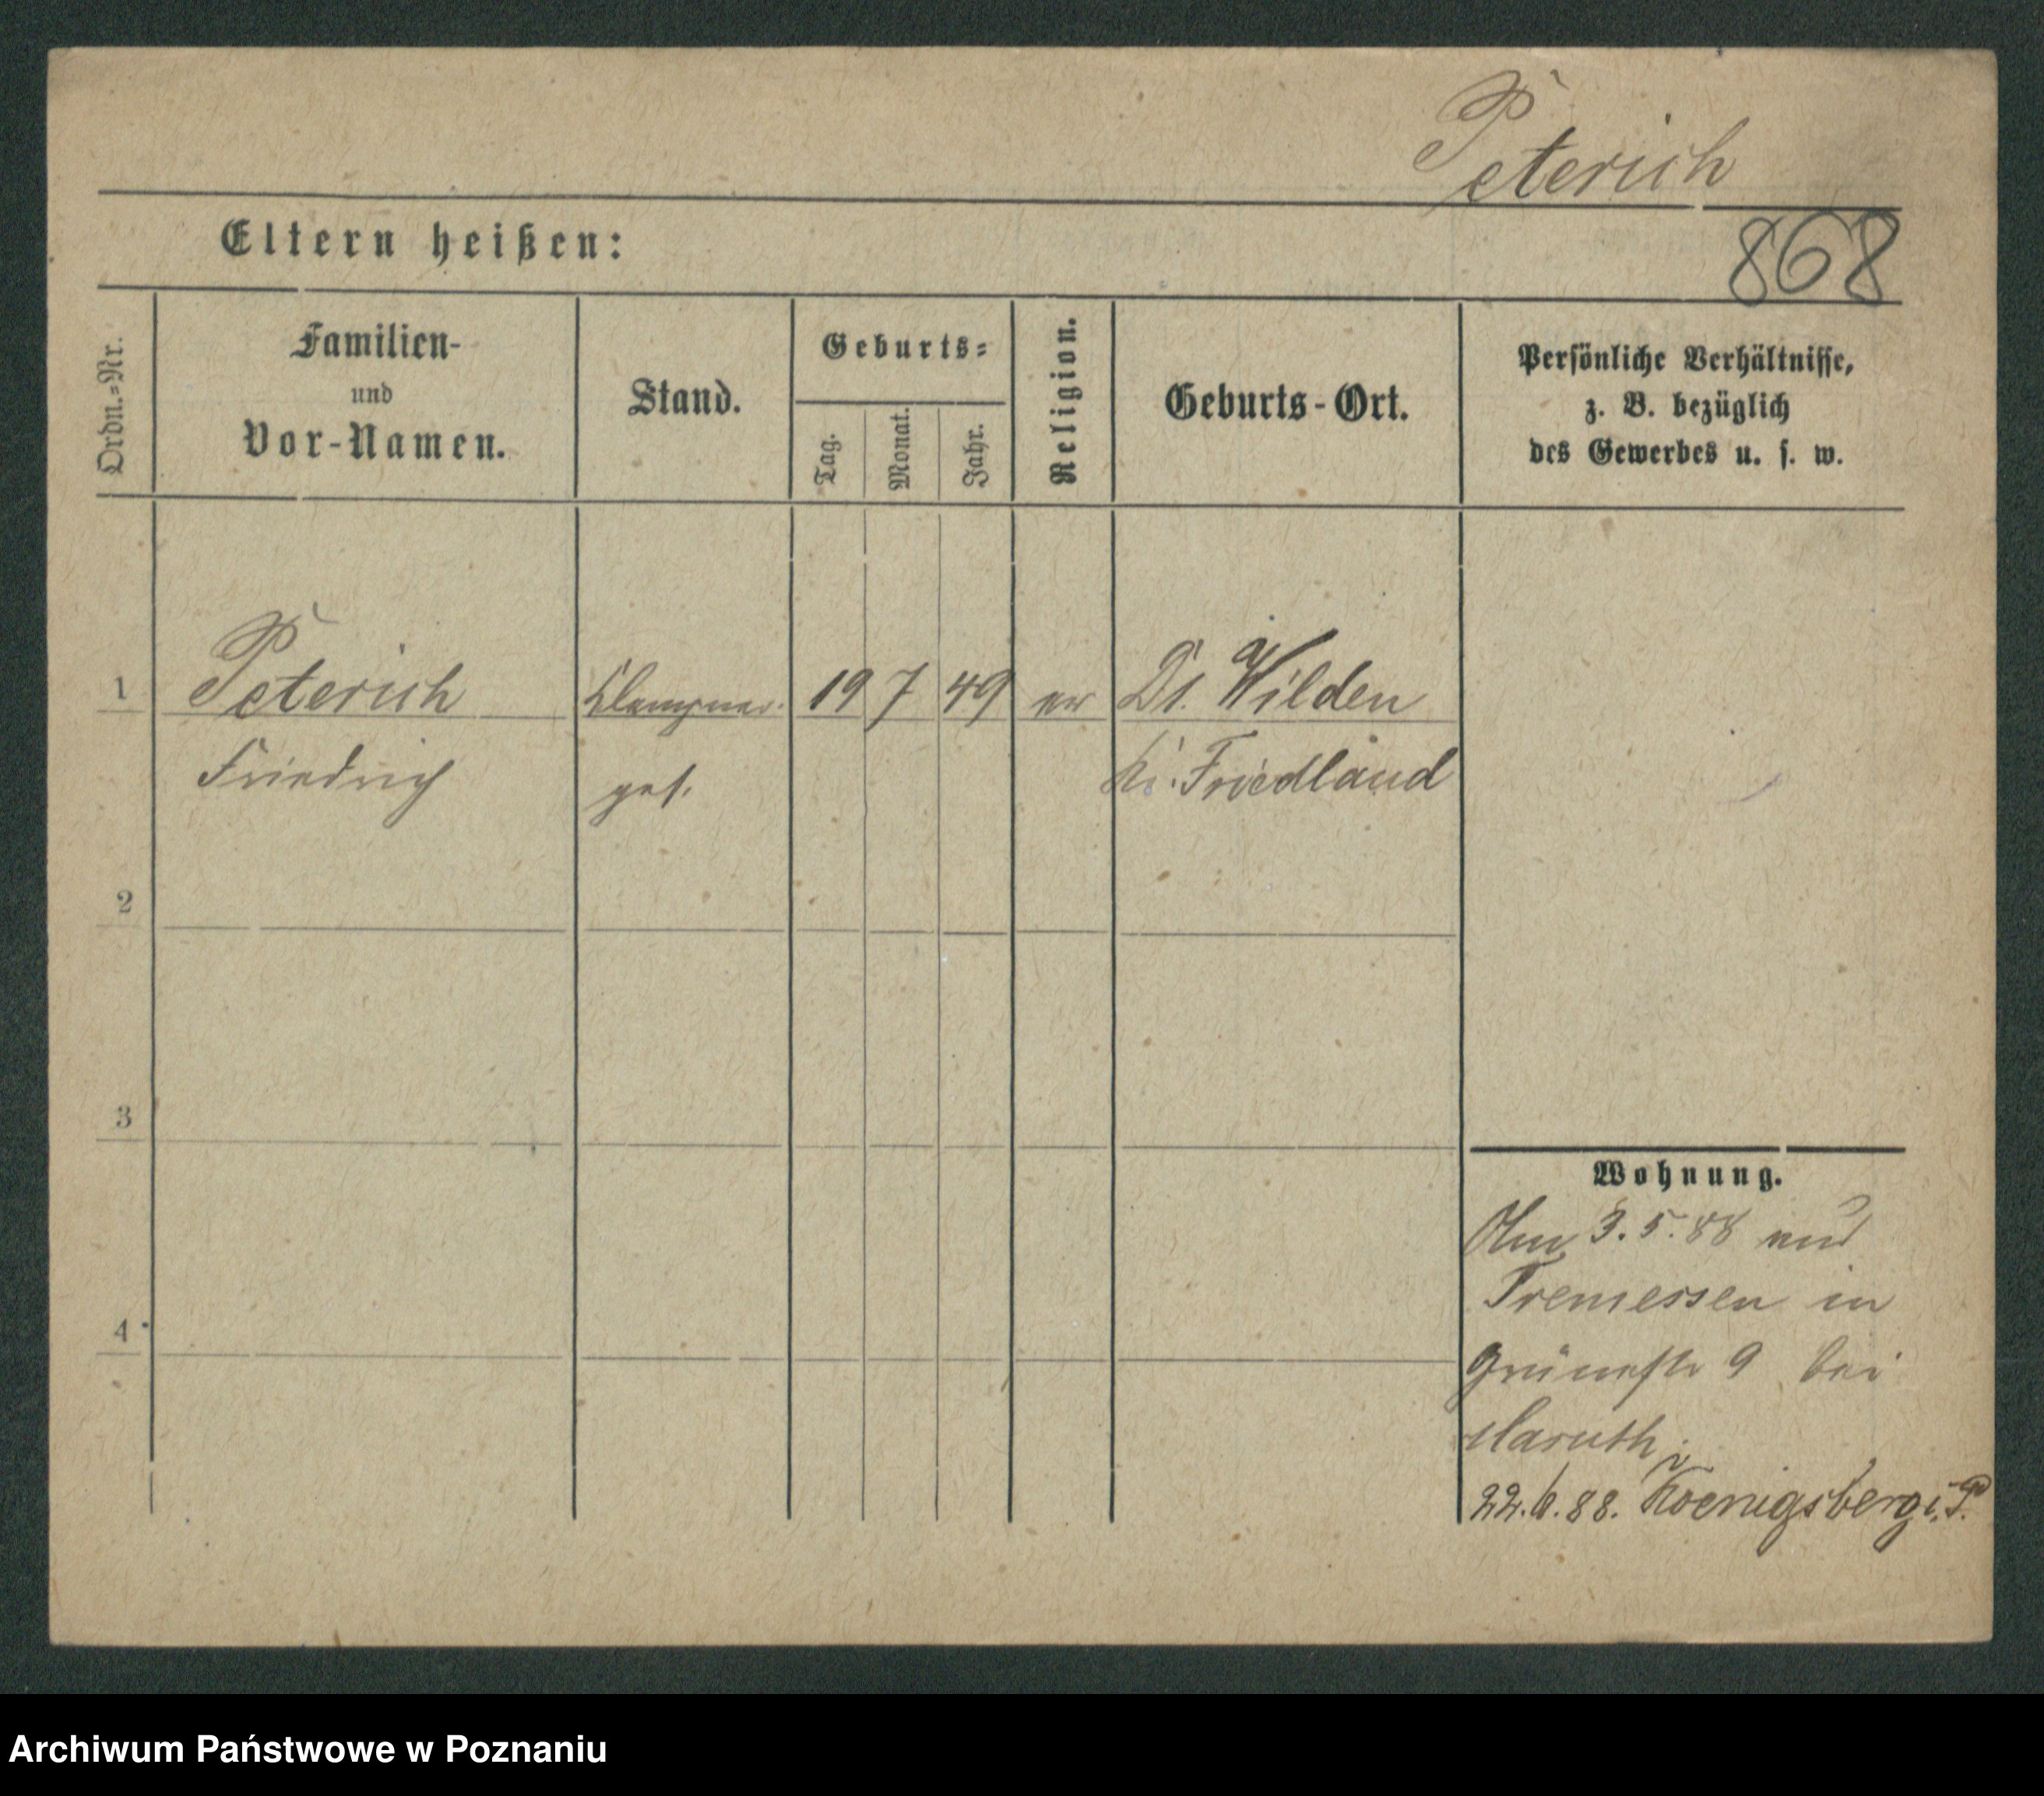 Peterich
868
Eltern heißen:
Ordn.=Nr.
Familien-
und
Vor-Namen.
Stand.
Geburts=
Tag.
Monat.
Jahr.
Religion.
Geburts-Ort.
Persönliche Verhältnisse,
z. B. bezüglich
des Gewerbes u. s. w.
1 Peterich Klempner 19 7 49 ev Dt. Wilden
Friedrich ges. Kr. Friedland
2
3
4
Wohnung.
3.5.88
Tremessen in
Grünestr 9 bei
22.6.88. Koenigsberg i. P.
Archiwum Państwowe w Poznaniu